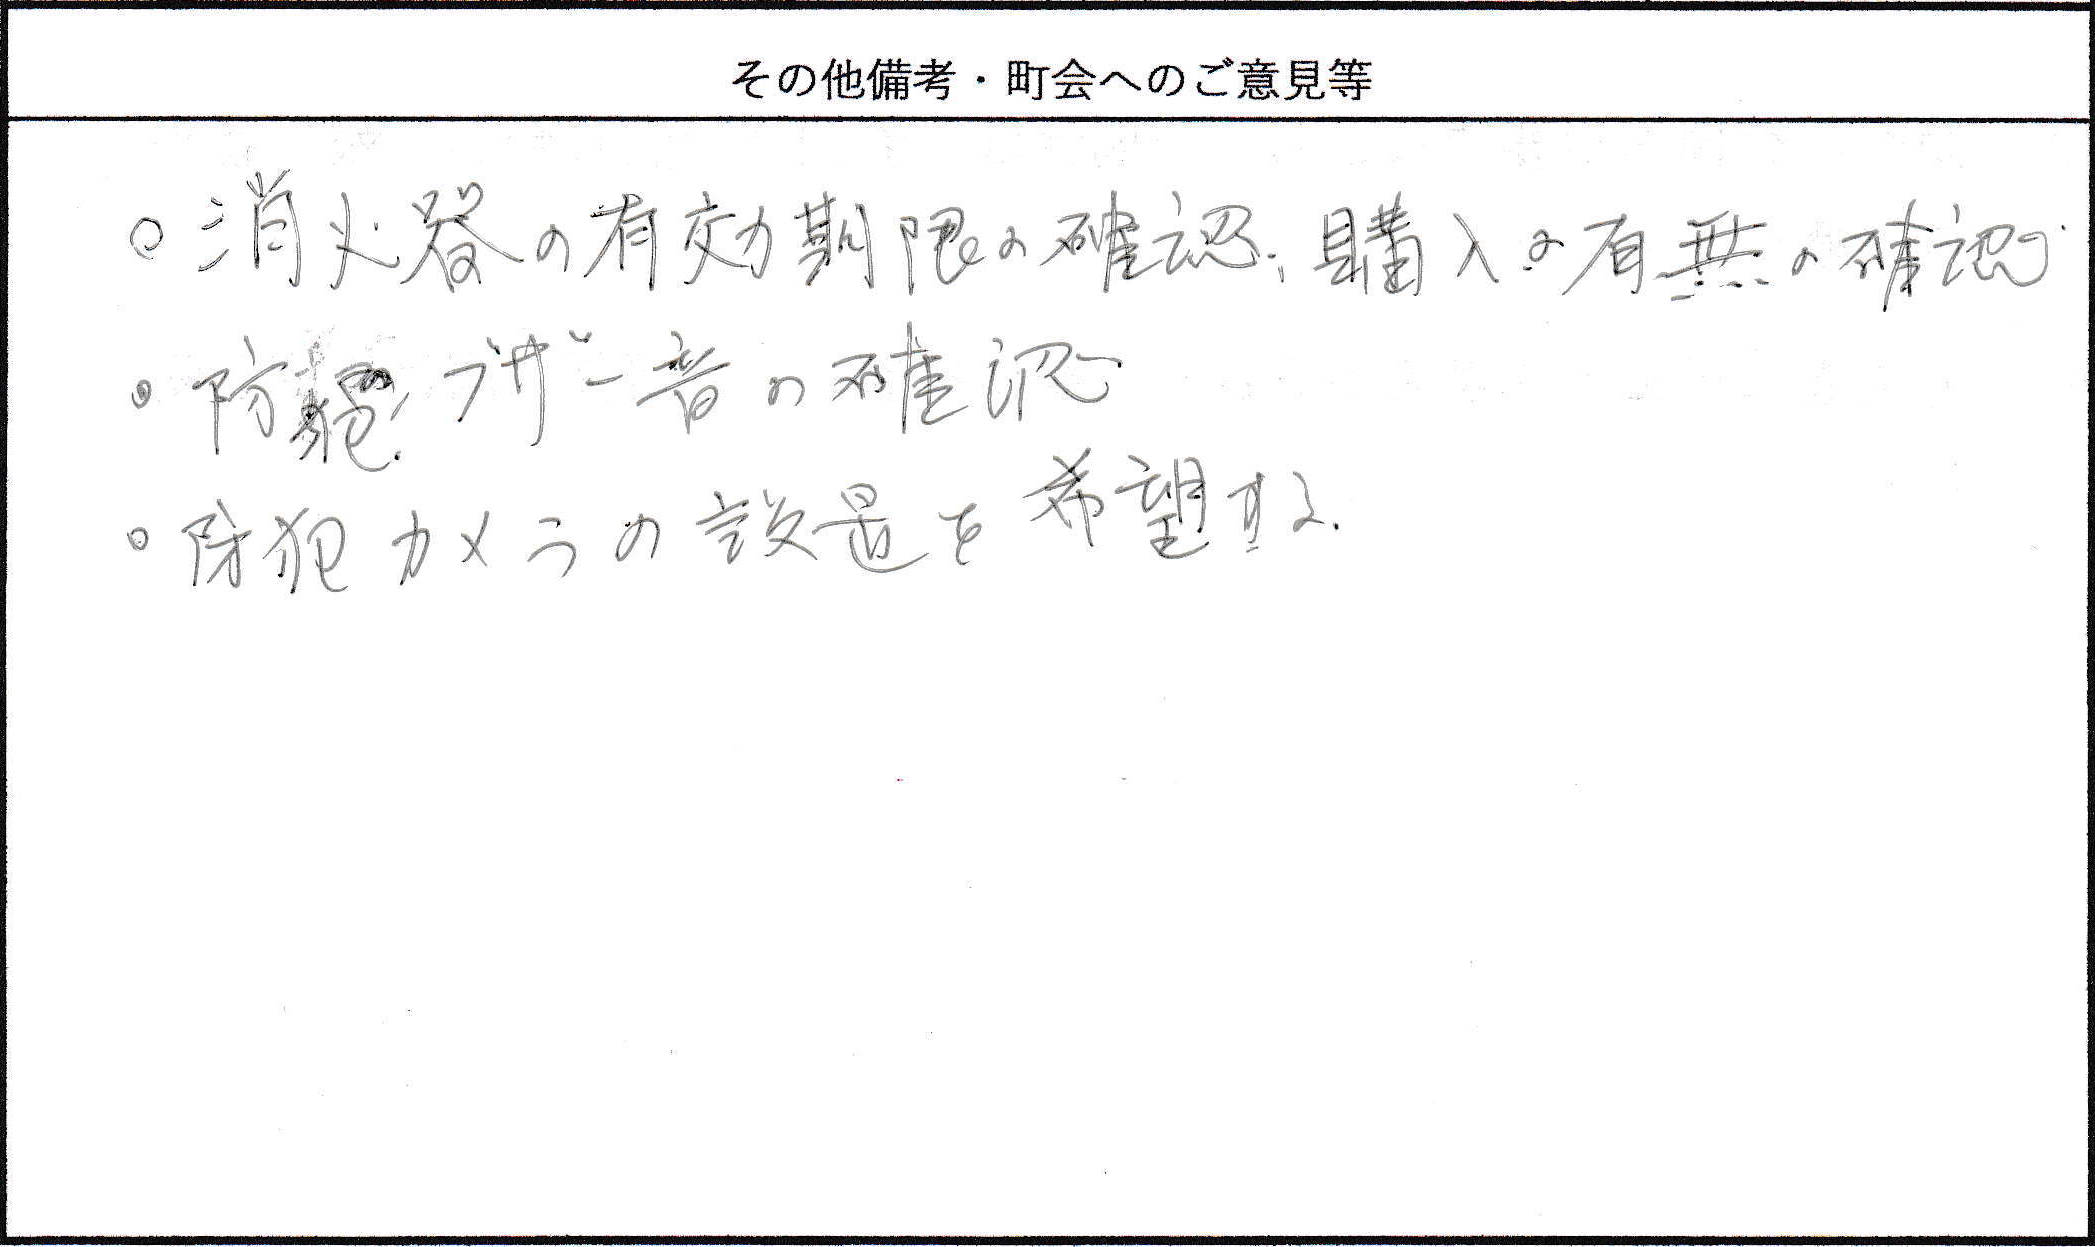 その他備考・町会へのご意見等
○ 消火器の有効期限の確認、購入の有無の確認
○ 防犯ブザー音の確認
○ 防犯カメラの設置を希望する.